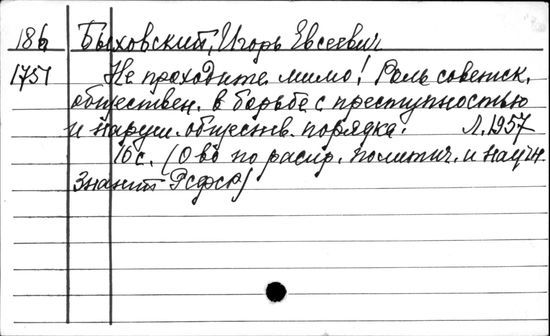 186 Быховский, Игорь Евсеевич
1757 Не проходите мимо! Роль советск.
обществен. в борьбе с преступностью
и наруш. обществ. порядка. Л. 1957
16 с. (О-во по распр. политич. и научн.
знаний РСФСР)